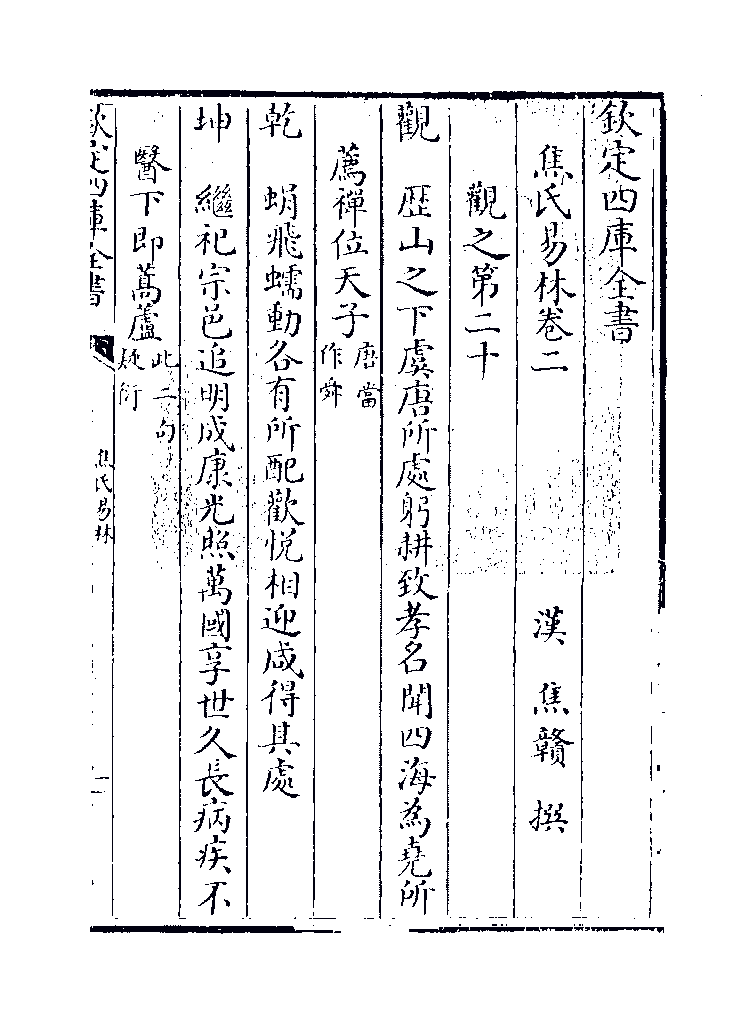 欽定四庫全書
焦氏易林卷二
漢 焦贛 撰
觀之第二十
觀 歴山之下虞唐所處躬耕致孝名聞四海為堯所
薦禪位天子唐當作舜
乾 蜎飛蠕動各有所配歡悅相迎咸得其處
坤 繼祀宗邑追明成康光照萬國享世久長病疾不
醫下即蒿蘆此二句疑衍
欽定四庫全書
焦氏易林
一